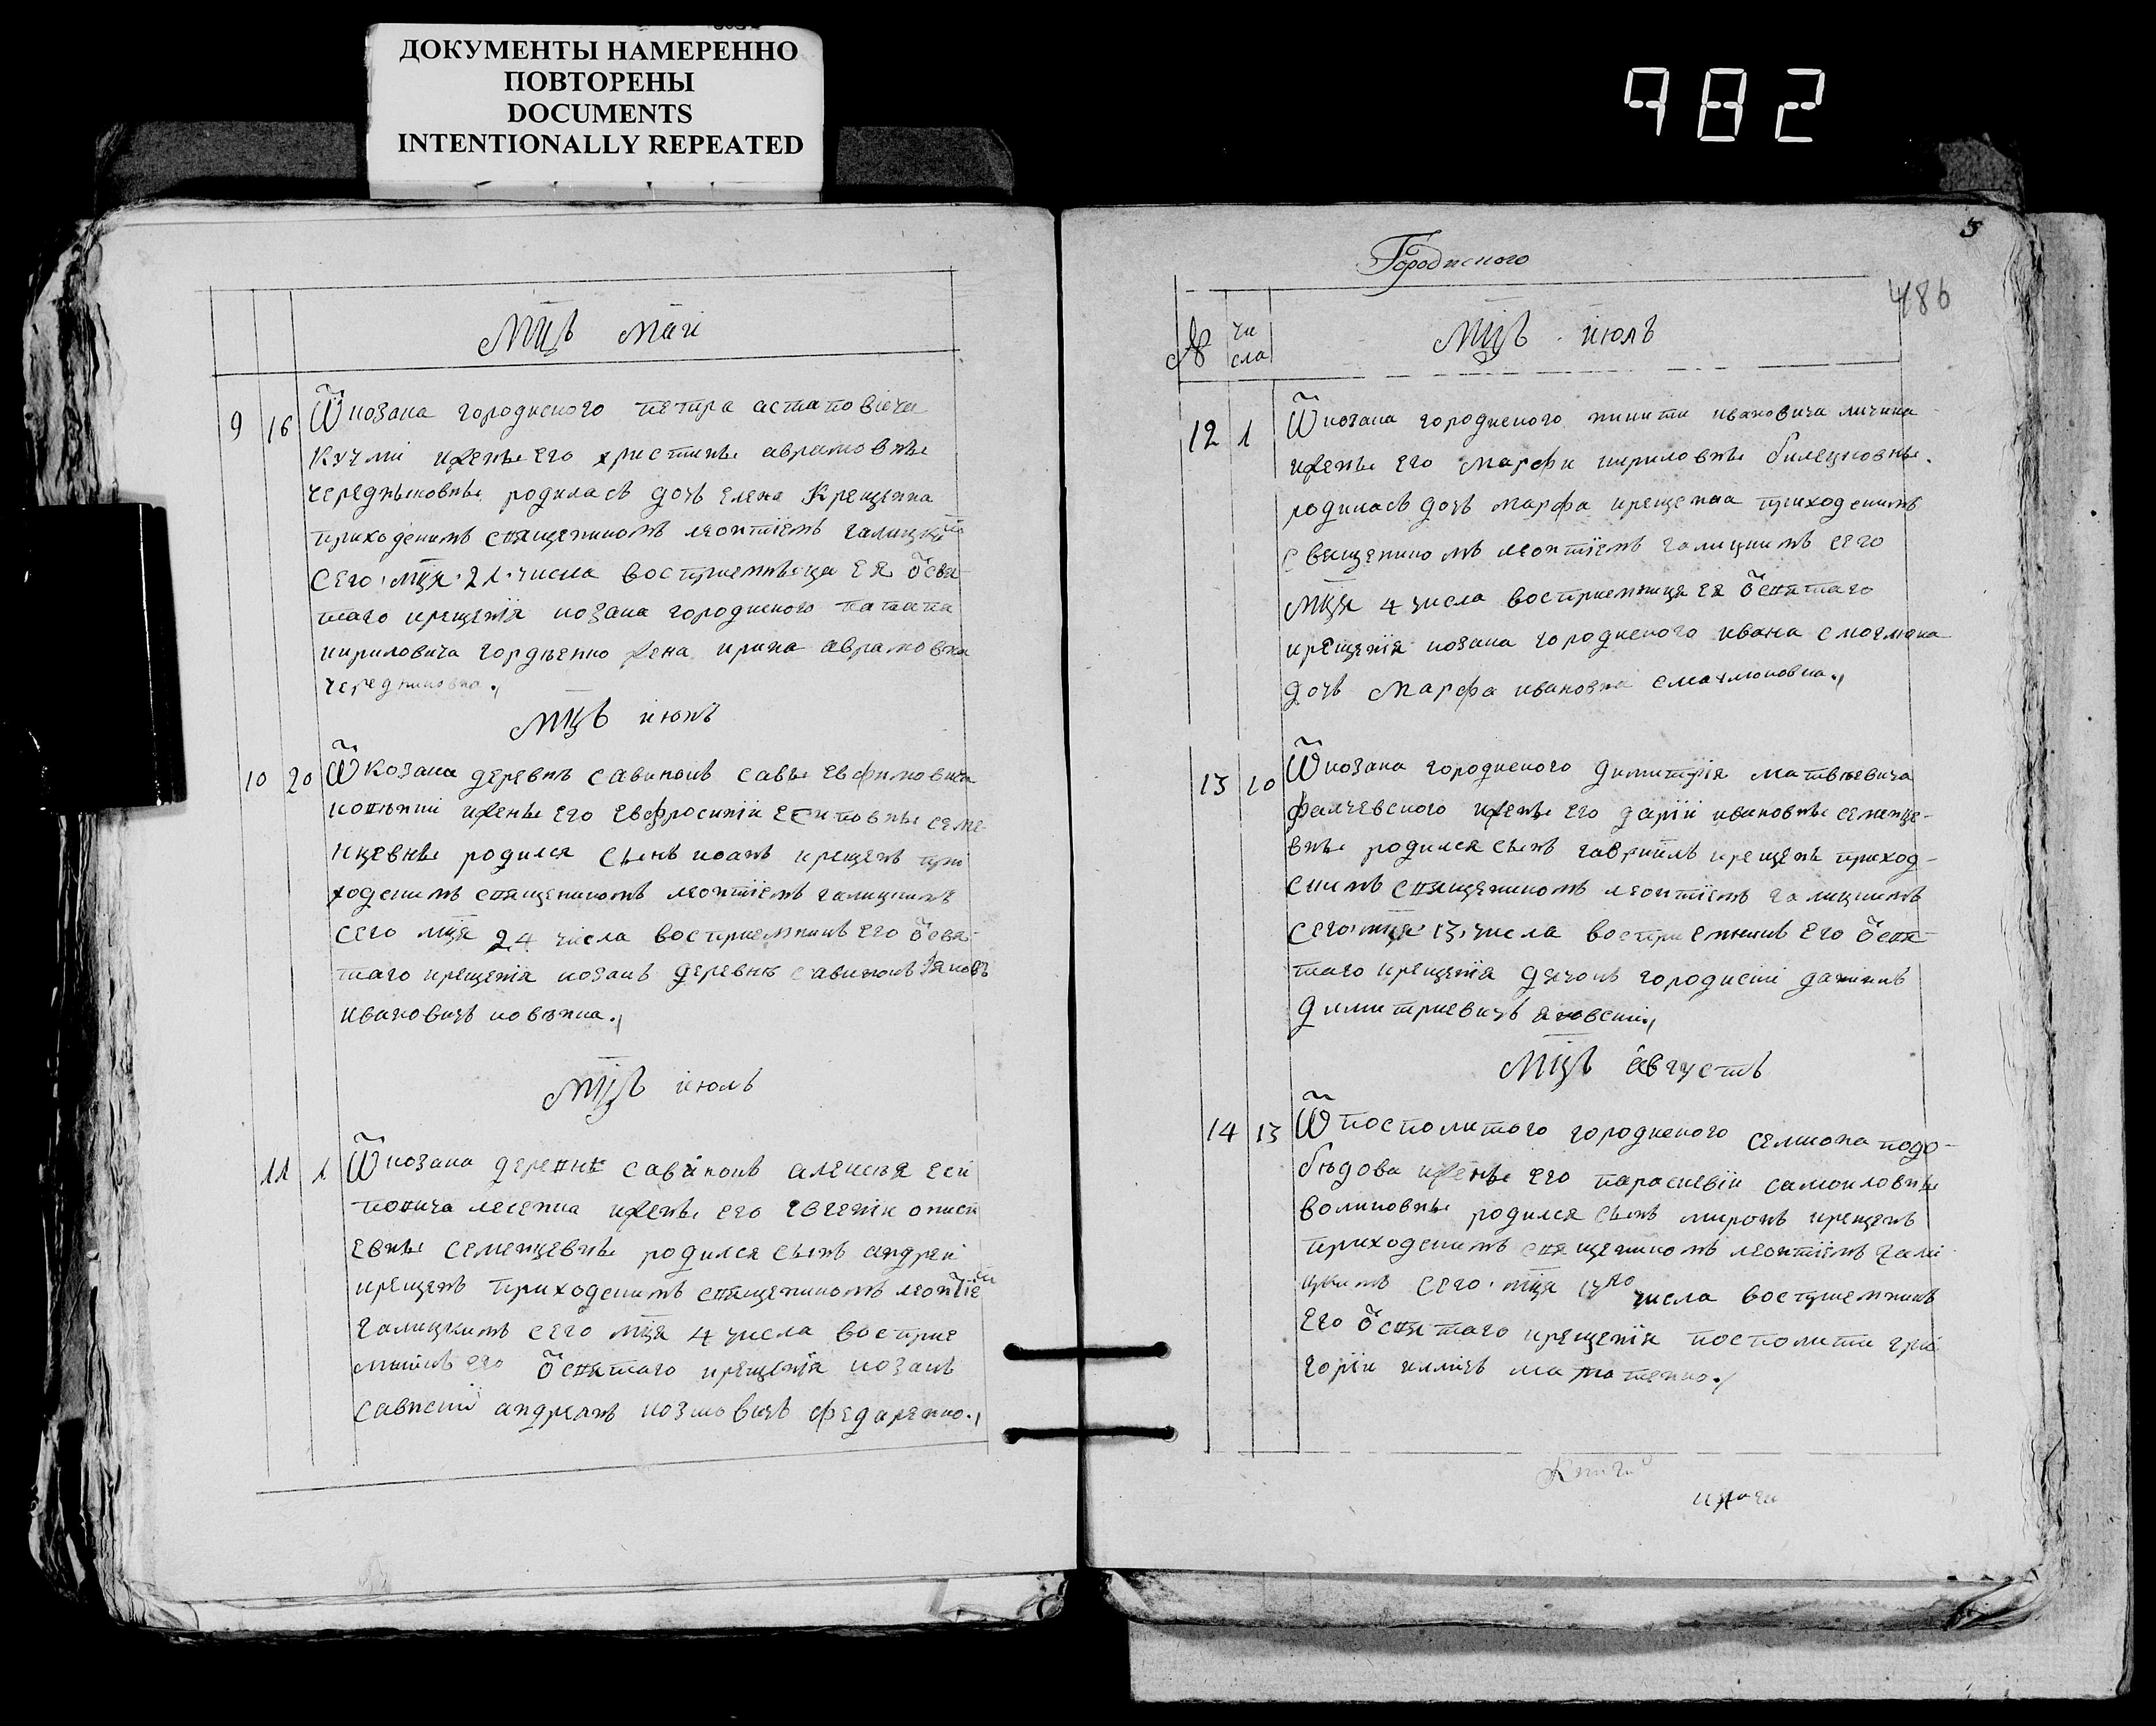 ДОКУМЕНТЫ НАМЕРЕННО
ПОВТОРЕНЫ
DOCUMENTS
INTENTIONALLY REPEATED
982
Мцъ маи
9 16 Ѿ козака городиского петра астаповича
Кучми ижены его христины аврамовны
чередниковны родилась дочь елена Крещенна
приходскимъ священикомъ леонтіемъ галицкі
сего мця 21 числа восприемница ея ѿ свя
таго крещенія козака городиского патапа
кириловича гордѣенко жена ирина аврамовна
чередниковна.
Мцъ июнъ
10 20 Ѿ Козака деревнѣ савинокъ савы евфимовича
ковѣкни ижены его евфросиніи есиповны семе
нцевны родился сынъ иоанъ крещенъ при
ходскимъ священикомъ леонтіемъ галицкимъ
сего мця 24 числа восприемникъ его ѿ свя
таго крещенія козакъ деревнѣ савинокъ яковъ
ивановичъ ковѣкна.
Мцъ июлъ
11 1 Ѿ козака деревнѣ савинокъ алексѣя еси
повича лесенка ижены его евгеніи
евны семенцевны родился сынъ андреи
крещенъ приходскимъ священикомъ леонтіе
галицкимъ сего мця 4 числа восприе
мникъ его ѿ святаго крещенія козакъ
савнскій андреянъ козмовичъ федаренко.
5
Городиского
486
№ чи
сла
Мцъ июлъ
12 1 Ѿ козака городиского никити ивановича личика
ижены его марфи кириловны билецковны
родилась дочъ марфа крещенаа приходскимъ
священикомъ леонтіемъ галицкимъ сего
мця 4 числа восприемница ея ѿ святаго
крещенія козака городиского ивана смоглюка
дочъ марфа ивановна
13 10 Ѿ козака городиского димитрія матвѣевича
фалчевского ижены его даріи ивановны семенце-
вны родился сынъ гавриилъ крещенъ приход-
скимъ священикомъ леонтіемъ галицкимъ
сего мця 13 числа восприемникъ его ѿ свя
таго крещенія дячокъ городискій данилъ
димитриевичъ яновскій.
Мцъ августъ
14 13 Ѿ посполитого городиского семиона подо-
бѣдова ижены его параскевіи самоиловны
воликовны родился сынъ миронъ крещенъ
приходскимъ священикомъ леонтіемъ гали
цкимъ сего мця 17го числа восприемникъ
его ѿ святаго крещенія посполити гри
горіи илличъ